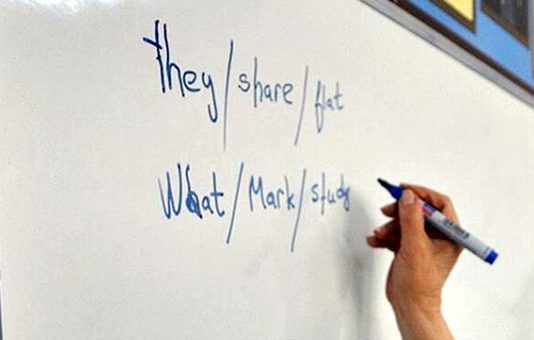 they/share/flat
What/Mark/study